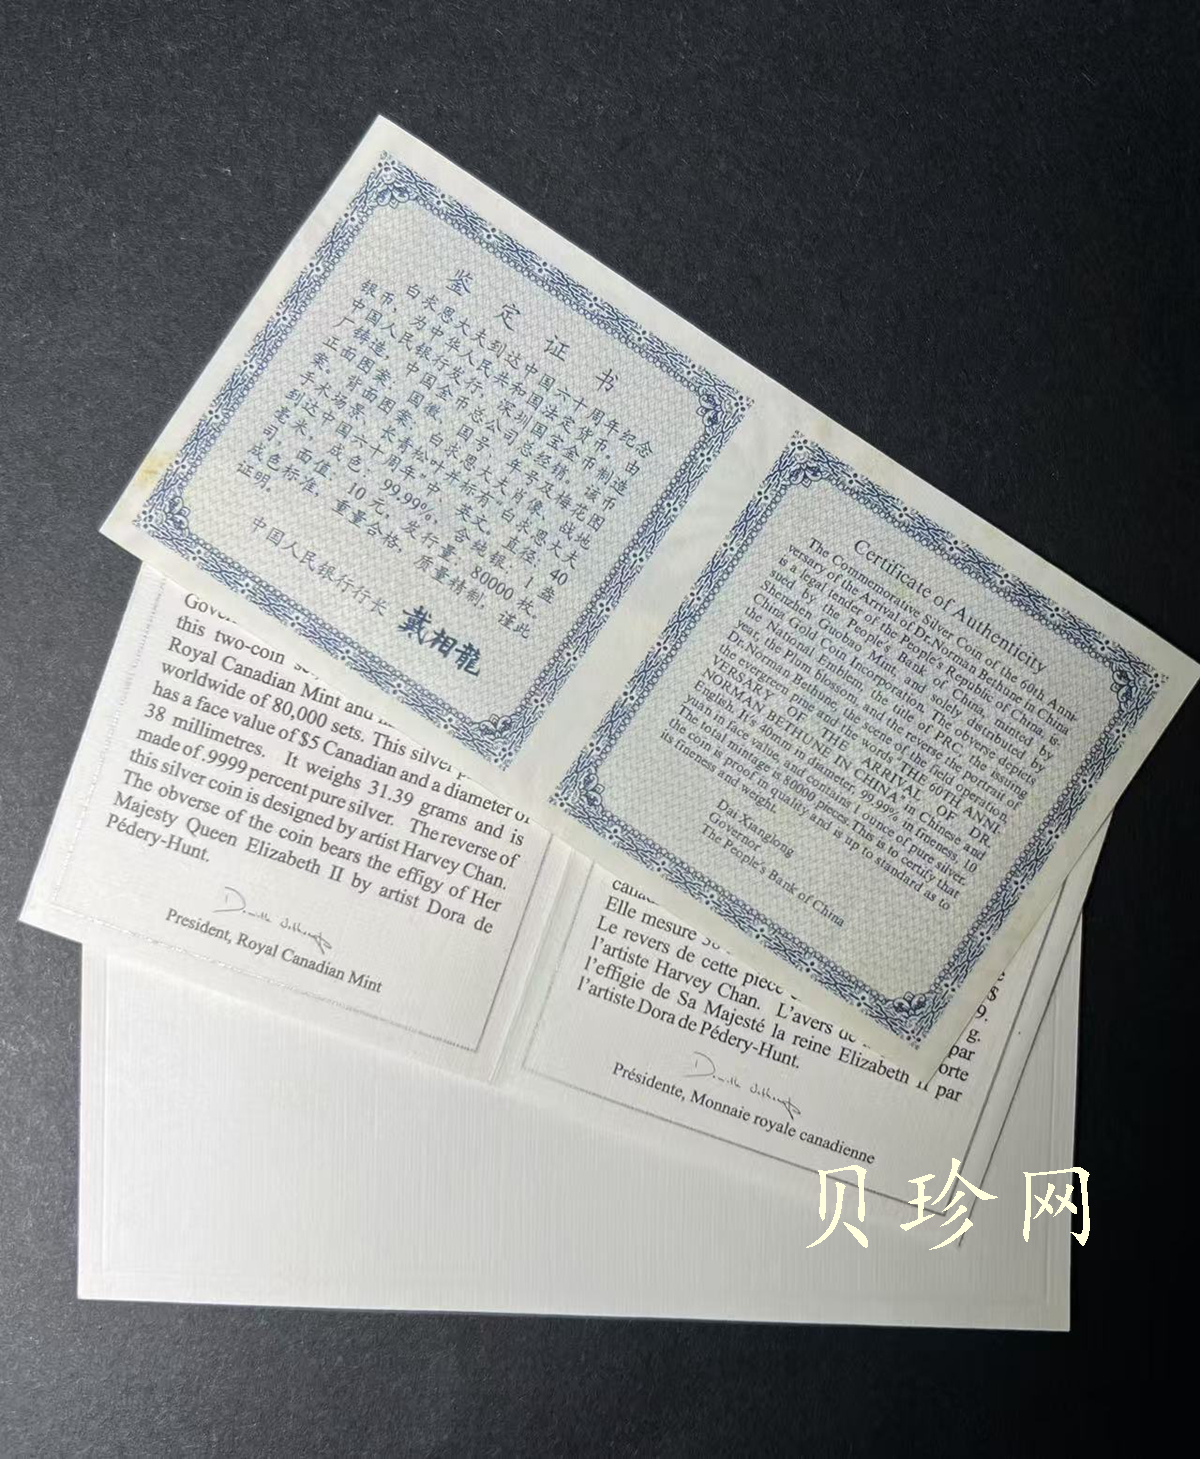 鉴定证书
白求恩大夫到达中国六十周年纪念
银币，为中华人民共和国法定货币，由
中国人民银行发行，深圳国宝金币制造
厂铸造，中国金币总公司总经销。该币
正面图案：国徽、国号、年号及梅花图
案。背面图案：白求恩大夫肖像、战地
手术场景、长青松叶并标有“白求恩大夫
到达中国六十周年”中、英文。直径：40
毫米，成色：99.99%，含纯银：1盎
司，面值：10元，发行量：80000枚，
成色标准，重量合格，质量精制，谨此
证明。
中国人民银行行长 戴相龍
Certificate of Authenticity
The Commemorative Silver Coin of the 60th Anni-
versary of the Arrival of Dr.Norman Bethune in China
is a legal tender of the People's Republic of China, is-
sued by the People's Bank of China, minted by
Shenzhen Guobao Mint, and solely distributed by
China Gold Coin Incorporation. The obverse depicts
the National Emblem, the title of PRC, the issuing
year, the Plum blossom, and the reverse the portrait of
Dr.Norman Bethune, the scene of the field operation,
the evergreen pine and the words 'THE 60TH ANNI-
VERSARY OF THE ARRIVAL OF DR.
NORMAN BETHUNE IN CHINA' in Chinese and
English. It's 40mm in diameter, 99.99% in fineness, 10
yuan in face value, and contains 1 ounce of pure silver.
The total mintage is 80000 pieces.This is to certify that
the coin is proof in quality and is up to standard as to
its fineness and weight.
Dai Xianglong
Governor
The People's Bank of China
this two-coin
Royal Canadian Mint and
worldwide of 80,000 sets. This silver
has a face value of $5 Canadian and a diameter of
38 millimetres. It weighs 31.39 grams and is
made of .9999 percent pure silver. The reverse of
this silver coin is designed by artist Harvey Chan.
The obverse of the coin bears the effigy of Her
Majesty Queen Elizabeth II by artist Dora de
Pédery-Hunt.
President, Royal Canadian Mint
$
9.
Elle mesure g.
Le revers de cette pièce par
l'artiste Harvey Chan. L'avers orte
l'effigie de Sa Majesté la reine Elizabeth II par
l'artiste Dora de Pédery-Hunt.
Présidente, Monnaie royale canadienne
贝珍网